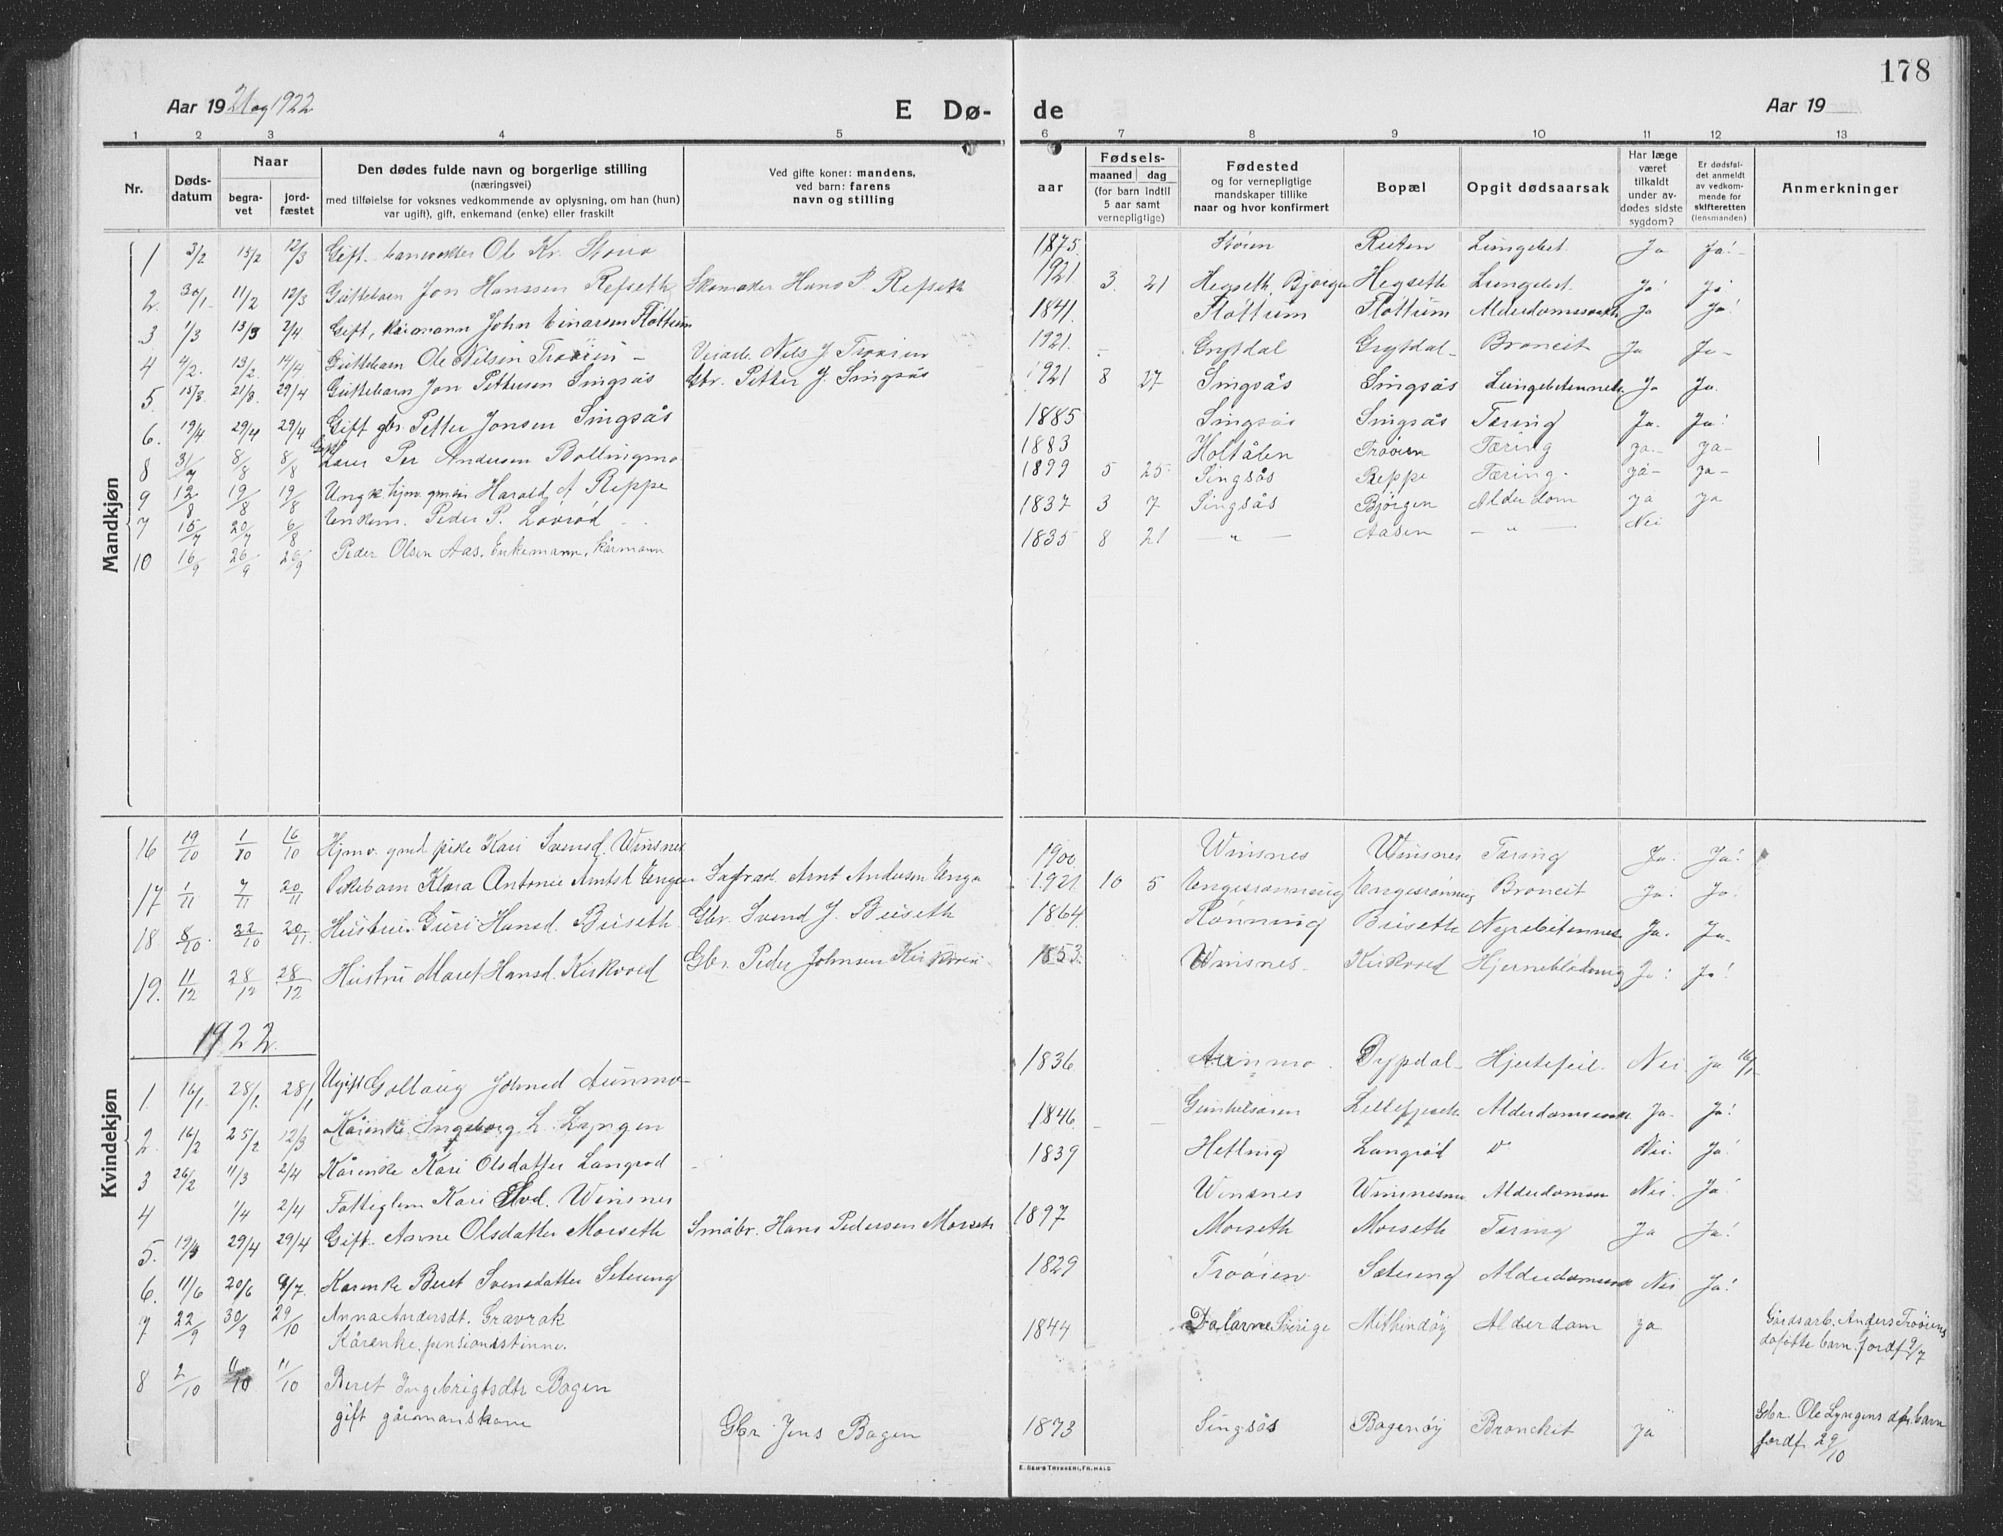 178
Aar 19 21 og 1922
E Dø-
de
Aar 19
1 2 3 4 5 6 7 8 9 10 11 12 13
Nr.
Døds-
datum
Naar
begra-
vet
jord-
fæstet
Den dødes fulde navn og borgerlige stilling
(næringsvei)
med tilføielse for voksnes vedkommende av oplysning, om han (hun)
var ugift), gift, enkemand (enke) eller fraskilt
Ved gifte koner: mandens,
ved barn: farens
navn og stilling
aar
Fødsels-
maaned dag
(for barn indtil
5 aar samt
vernepligtige)
Fødested
og for vernepligtige
mandskaper tillike
naar og hvor konfirmert
Bopæl
Opgit dødsaarsak
Har læge
været
tilkaldt
under av-
dødes sidste
sygdom?
Er dødsfal-
det anmeldt
av vedkom-
mende for
skifteretten
(lensmanden)
Anmerkninger
Mandkjøn
1 3/2 15/2 12/3 Gift. banevokter Ole Kr. Støen 1875 Støren Lungebet. Ja Ja!
2 30/1 11/2 12/3 Guttebarn Jon Hanssen Refseth Skomaker Hans P. Refseth 1921 3 21 Hegseth Bjørgen Hegseth Lungebet. Ja Ja
3 1/3 13/3 2/4 Gift, kårmann John Einarsen Flottum 1841 Flottum Flottum Ja Ja!
4 4/2 13/2 14/4 Guttebarn Ole Nilsen Trøøien Nils J. Trøøien 1921 Grytdal Grytdal Broncit Ja Ja
5. 15/3 21/3 29/4 Guttebarn Jon Pettersen Singsås Gbr. Petter J. Singsås 1921 8 27 Singsås Singsås Ja Ja.
6. 19/4 29/4 29/4 Gift gbr. Petter Jonsen Singsås 1885 Singsås Singsås Tæring Ja. Ja!
8 8/8 8/8 Per Andersen Bollingmo 1883 Holtålen Trøøien Tæring ja ja
9 12/8 19/8 19/8 Ungk. hjmv. Harald A Reppe 1899 5 25 Singsås Reppe Tæring ja ja
7 15/7 20/7 6/8 Enkem. Peder P. Løvrød 1837 3 7 Singsås Bjørgen Alderdom ja ja
10 16/9 26/9 26/9 Peder Olsen Aas. Enkemann, kårmann 1835 8 21 — " — Aasen — " — Nei
Kvindekjøn
16 19/10 1/10 16/10 Hjmv. gmd pike Kari Svensd. Winsnes 1900 Winsnes Winsnes Tæring Ja. Ja!
17 1/11 7/11 20/11 Pikebarn Klara Antonie Arntsd. Engen Arnt Andersen Enga 1921 10 5 Engesrønning Engesrønning Broncit Ja. Ja.
18 8/10 22/10 20/11 Hustru Guri Hansd. Buseth Gbr. Svend J. Buseth 1864 Rønning Buseth Ja. Ja
19. 11/12 28/12 28/12 Hustru Maret Hansd. Kirkvold Gbr. Peder Johnsen 1853 Winsnes Kirkvold Hjerneblødning Ja: Ja!
1922.
1. 16/1 28/1 28/1 Ugift Gollaug Johnsd Aunmo 1836 Aunmo Dypdal Hjertefeil. Nei Ja 16/1
2. 16/2 25/2 12/3 Kårenke Ingeborg L. Lyngen 1846 Ja. Ja!
3 26/2 11/3 2/4 Kårenke Kari Olsdatter Langrød 1839 Hefling Langrød " Nei. Ja!
4 1/4 2/4 Fattiglem Kari Winsnes Winsnes Nei. Ja!
5. 19/4 29/4 29/4 Gift. Anne Olsdatter Morseth Småbr. Hans Pedersen Morseth 1897 Morseth Morseth Tæring Ja Ja!
6. 11/6 20/6 9/7 Kårenke Beret Svensdatter Setering 1829 Trøøien Setering Nei Ja!
7 22/9 30/9 29/10 Anna Andersdt. Gravrok 1844 Dalarne Sverige Alderdom ja Gårdsarb. Anders Trøøiens
Kårenke, pensionistinne. døpte barn fordf. 9/7
8 2/10 11/10 11/10 Beret Ingebrigtsdtr Bogen
gift gårmanskone Gbr Jens Bogen 1873 Singsås Bogenøy Bronckit ja Gbr. Ole Lyngens dpt. barn
fordf. 29/10
E. SEM'S TRYKKERI, FR.HALD